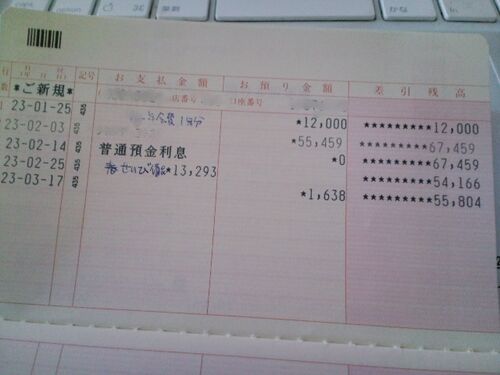 行数 年月日 記号 お支払金額 お預り金額 差引残高
*ご新規* 店番号 口座番号
1 23-01-25 *12,000 *********12,000
23-02-03 *55,459 *********67,459
23-02-14 普通預金利息 *0 *********67,459
23-02-25 *13,293 *********54,166
23-03-17 *1,638 *********55,804